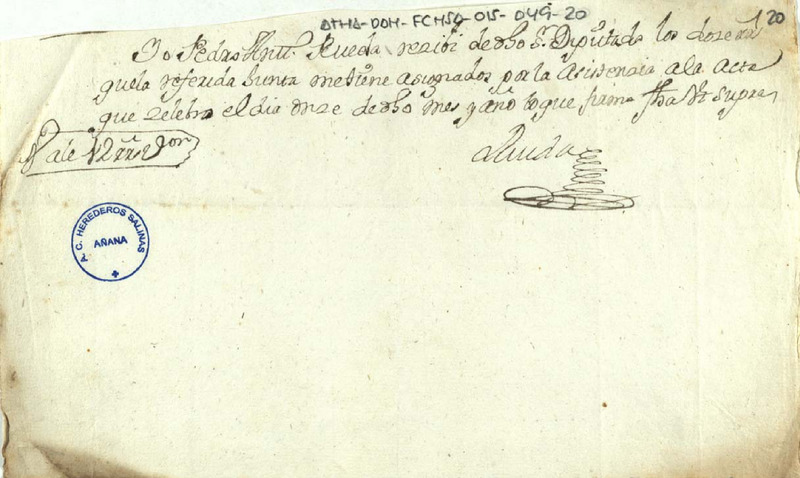 ATHA-DOH-FCHSA-015-049-20
20
Yo Pedro Antt.º Rueda recibi de dho S.r Diputado los doze rr.s
que la referida Junta me tiene asignados por la Asistencia a la Acta
que zelebro el dia onze de dho mes y año lo que firmo fha Ut Supra
Rueda
Vale 12 rr.s von
P. C. HEREDEROS SALINAS
AÑANA